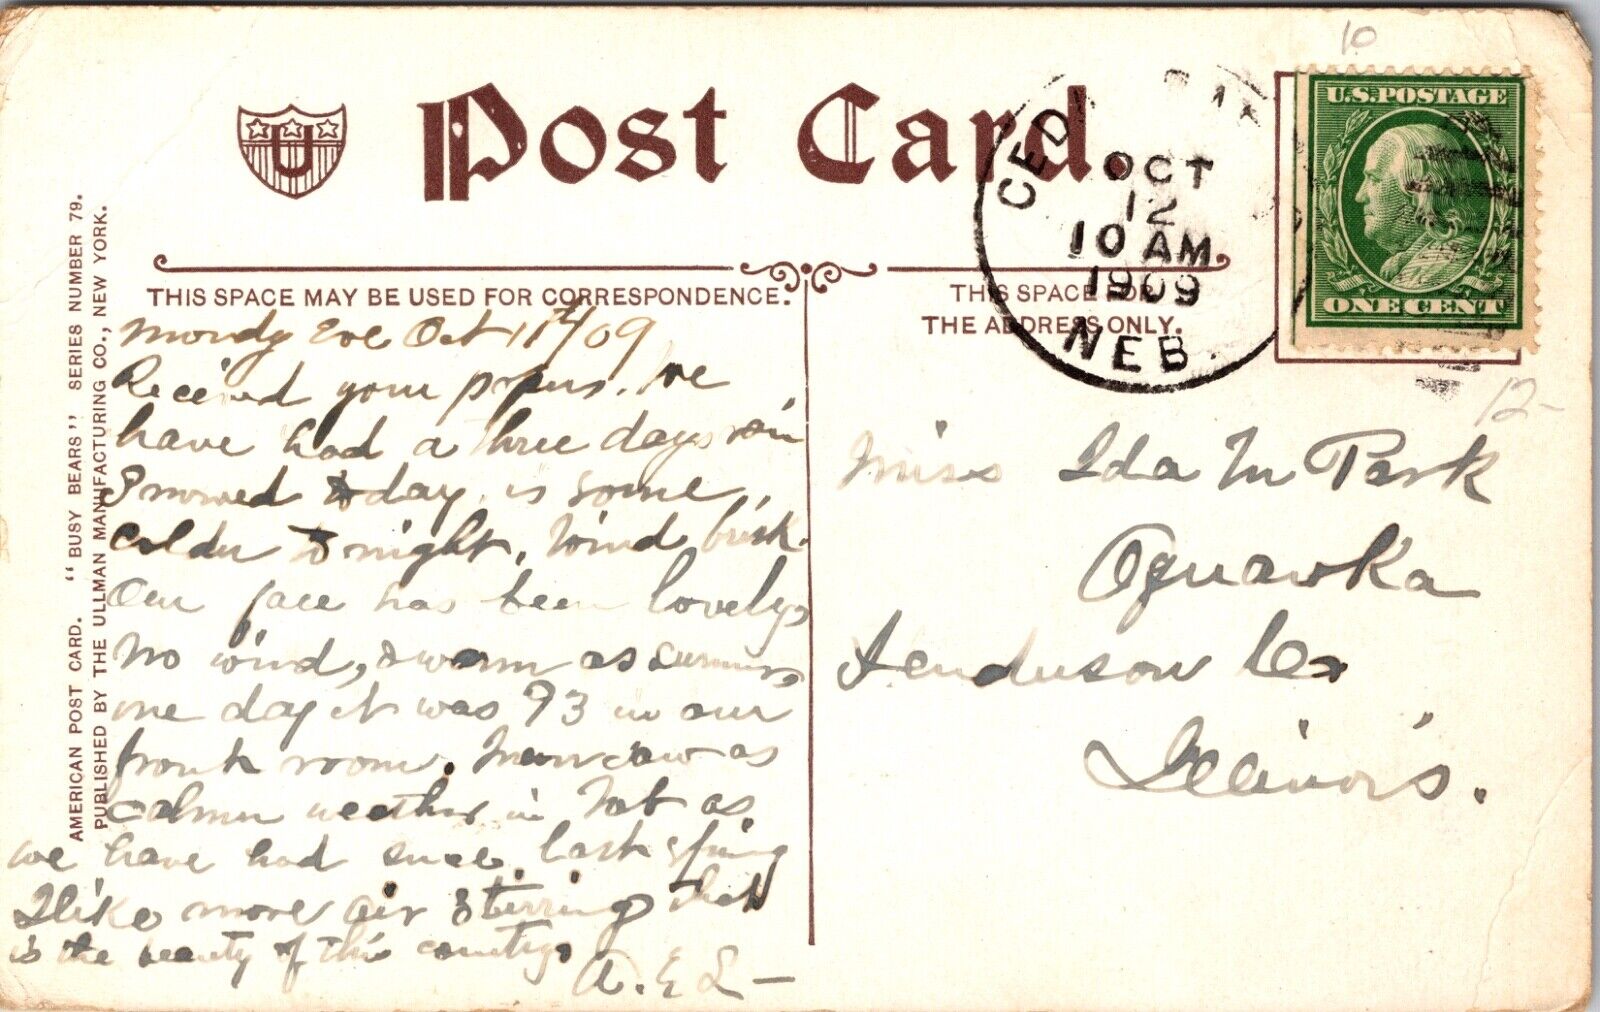 10
Post Card.
U
CED
OCT
12
10 AM
1909
NEB.
U.S. POSTAGE
ONE CENT
12-
THIS SPACE MAY BE USED FOR CORRESPONDENCE.
THIS SPACE FOR
THE ADDRESS ONLY.
AMERICAN POST CARD. "BUSY BEARS" SERIES NUMBER 79.
PUBLISHED BY THE ULLMAN MANUFACTURING CO., NEW YORK.
Mondy Eve Oct 11th/09
Received your papers. We
have had a three days rain
I mowed today, is some
colder to night, Wind brisk.
Our face has been lovely,
No wind, & warm as summer
one day it was 93 in our
front room. Never saw as
calmer weather in Neb as
we have had since last spring
I like more air stirring that
is the beauty of this country.
A. E S-
Miss Ida M Park
Oquawka
Henderson Co
Illinois.